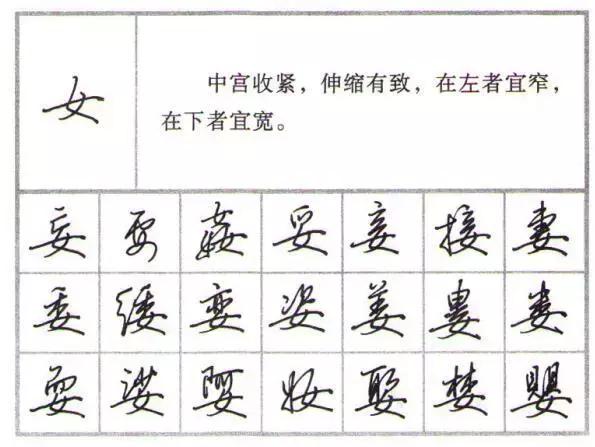 女
中宫收紧，伸缩有致，在左者宜窄，
在下者宜宽。
妄 要 姦 妥 妾 接 妻
委 矮 娈 姿 姜 婁 娄
耍 娑 婴 妆 娶 楼 嬰